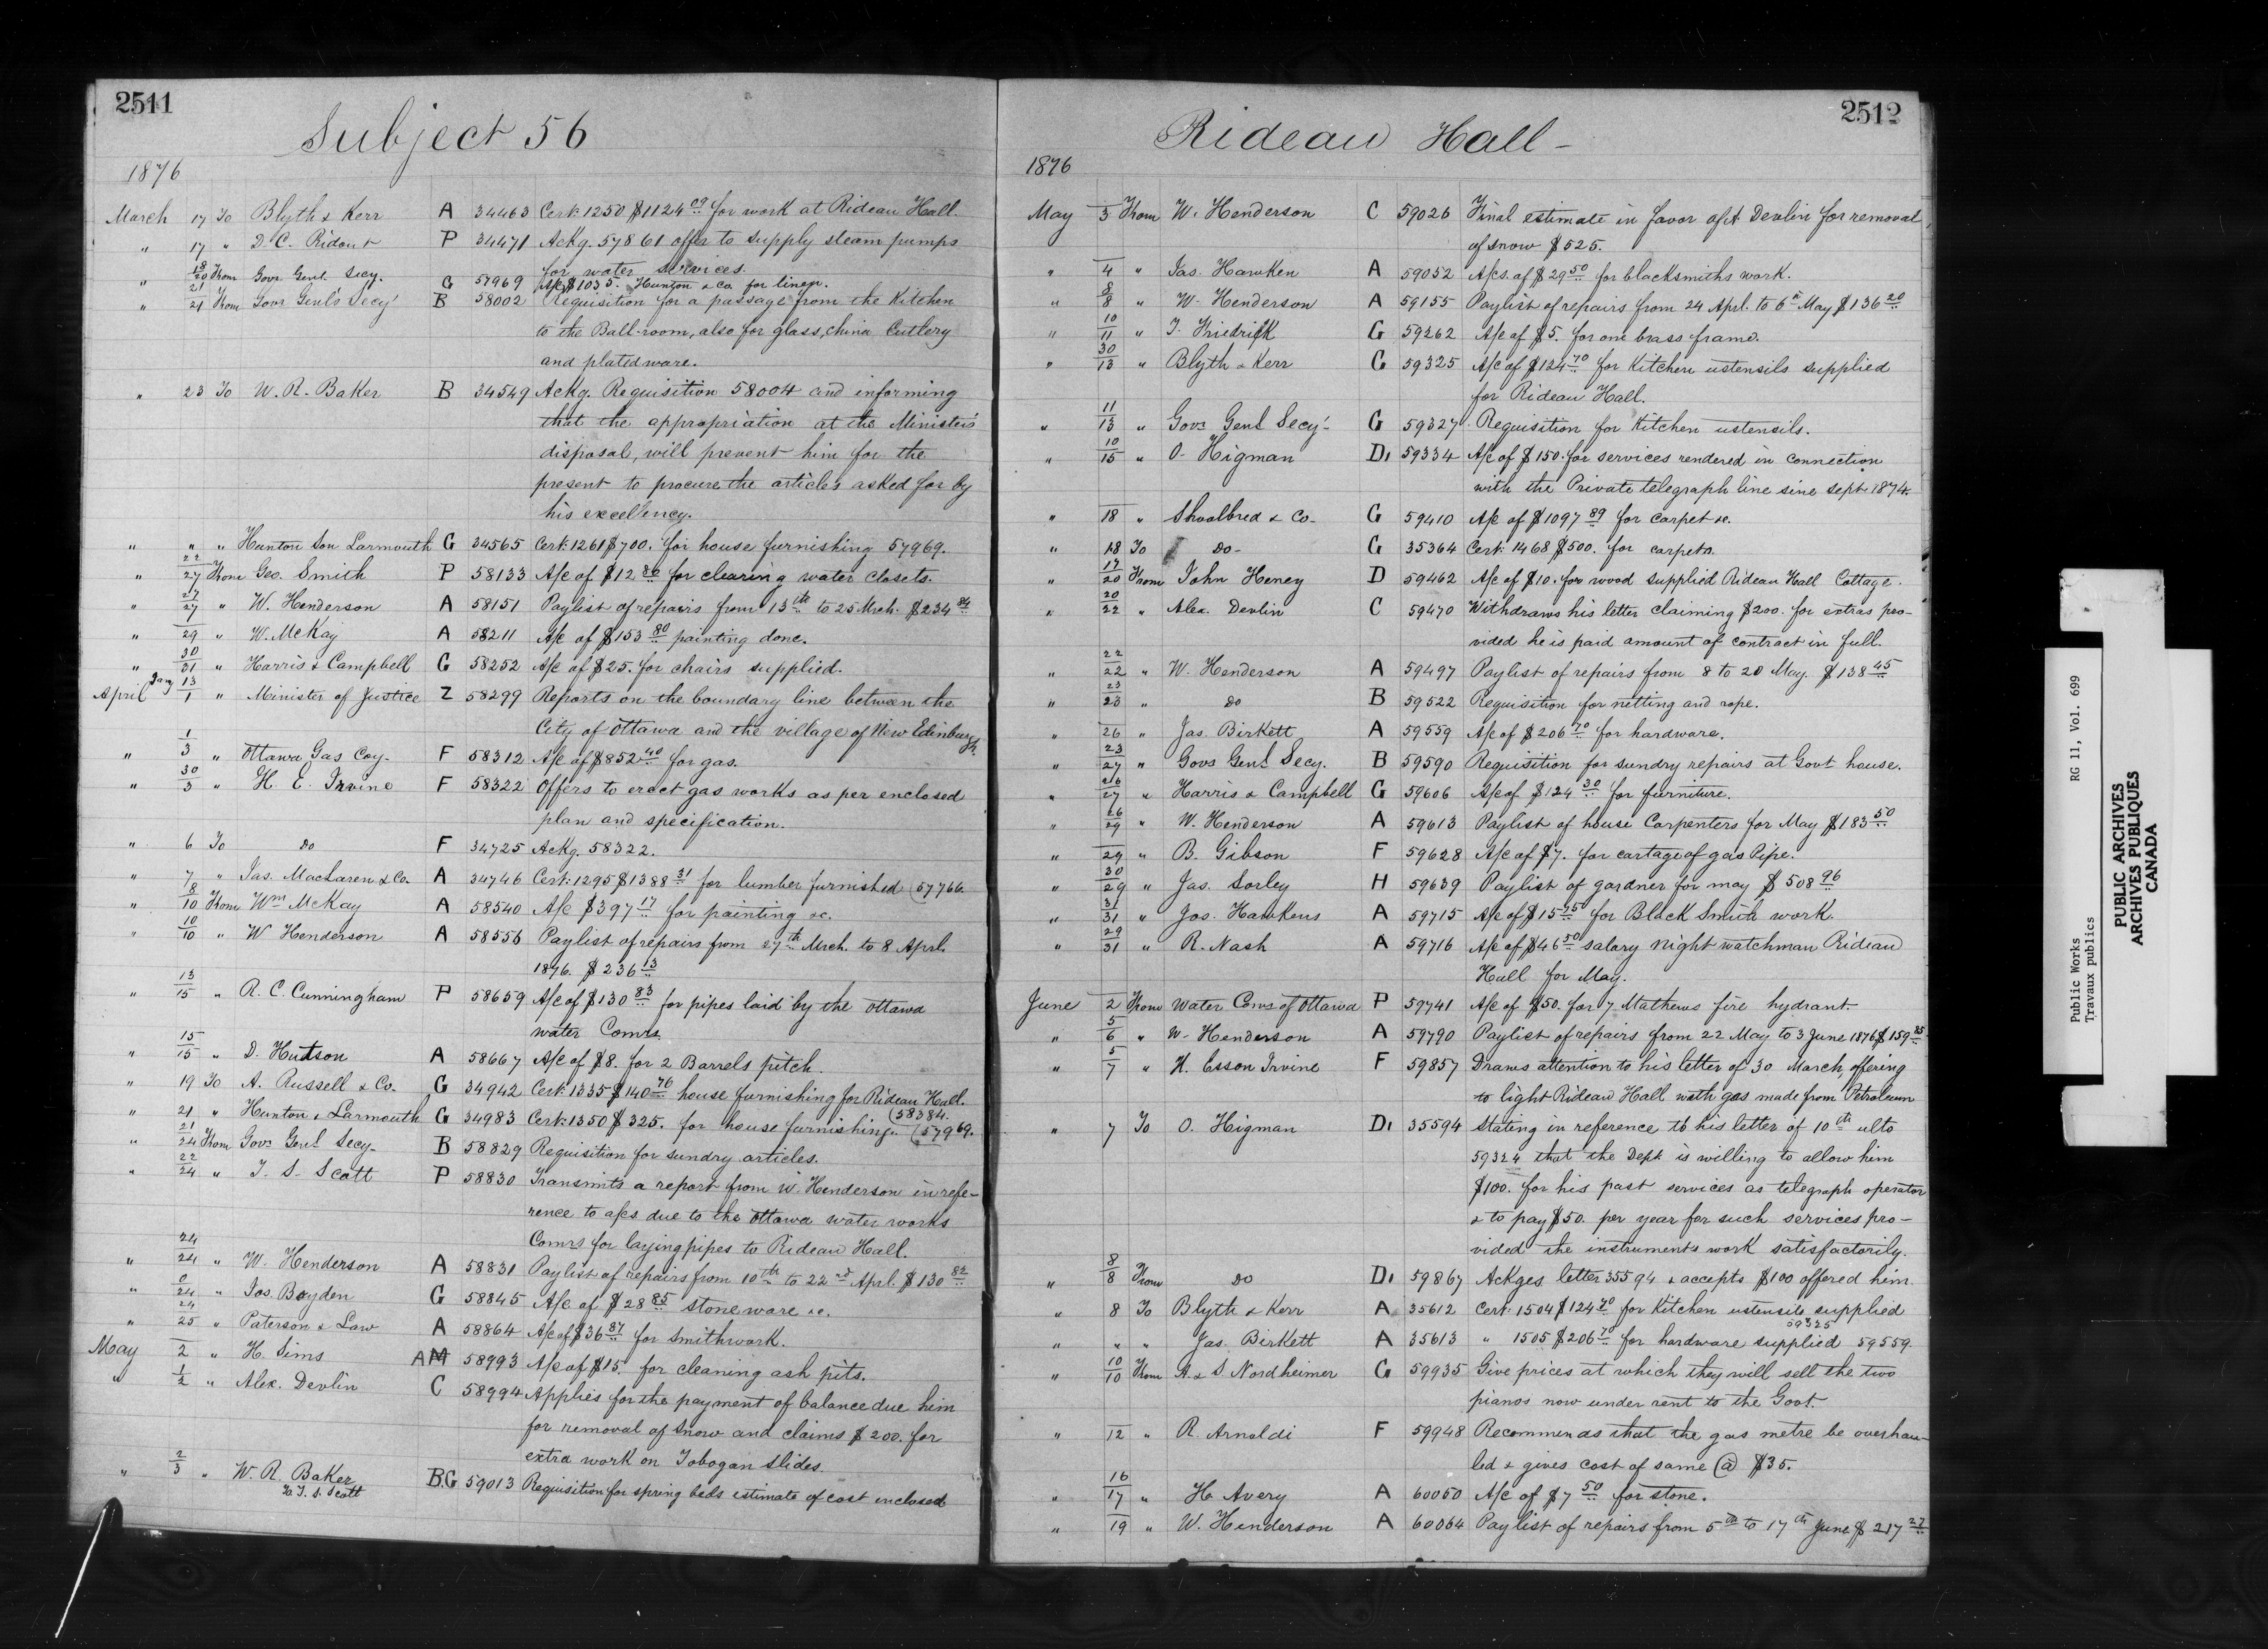 2511
Subject 56
1876
March 17 To Blyth & Kerr A 34463 Cert: 1250 $1124 09 for work at Rideau Hall.
" 17 " D. C. Ridout P 34471 Ackg. 57861 offer to supply steam pumps
for water services.
" 18/20 From Govr Genl. Secy. G 57969 A/c $1035. Hunton & Co. for linen.
" 21/21 From Govr Genl's Secy B 58002 Requisition for a passage from the Kitchen
to the Ball-room, also for glass, china Cutlery
and platedware.
" 23 To W. R. Baker B 34549 Ackg. Requisition 58004 and informing
that the appropriation at the Minister's
disposal, will prevent him for the
present to procure the articles asked for by
his excellency.
" " " Hunton Son Larmouth G 34565 Cert: 1261 $700. for house furnishing 57969.
" 22/27 From Geo. Smith P 58133 A/c of $12 86 for clearing water closets.
" 27/27 " W. Henderson A 58151 Paylist of repairs from 13th to 25 Mrch. $234 84
" 29 " W. McKay A 58211 A/c of $153 80 painting done.
" 30/31 " Harris & Campbell G 58252 A/c of $25. for chairs supplied.
April Jany 13/1 " Minister of Justice Z 58299 Reports on the boundary line between the
City of Ottawa and the village of New Edinburgh.
" 1/3 " Ottawa Gas Coy. F 58312 A/c of $852 40 for gas.
" 30/3 " H. E. Irvine F 58322 Offers to erect gas works as per enclosed
plan and specification.
" 6 To do F 34725 Ackg. 58322.
" 7 " Jas. MacLaren & Co. A 34746 Cert: 1295 $1388 31 for lumber furnished (57766
" 8/10 From Wm McKay A 58540 A/c $397 17 for painting &c.
" 10/10 " W Henderson A 58556 Paylist of repairs from 27th Mrch. to 8 Aprl.
1876. $236 13
" 13/15 " R. C. Cunningham P 58659 A/c of $130 83 for pipes laid by the Ottawa
water Comrs
" 15/15 " D. Hutson A 58667 A/c of $8. for 2 Barrels pitch.
" 19 To A. Russell & Co. G 34942 Cert: 1335 $140 76 house furnishing for Rideau Hall.
(58384.
" 21 " Hunton & Larmouth G 34983 Cert: 1350 $325. for house furnishing. (57969.
" 21/24 From Govr Genl Secy. B 58829 Requisition for sundry articles.
" 22/24 " T. S. Scott P 58830 Transmits a report from W. Henderson in refe-
rence to a/cs due to the Ottawa water works
Comrs for laying pipes to Rideau Hall.
" 24/24 " W. Henderson A 58831 Paylist of repairs from 10th to 22nd Aprl. $130 82
" 0/24 " Jos. Boyden G 58845 A/c of $28 85 stone ware &c.
" 24/25 " Paterson & Law A 58864 A/c of $36 87 for smithwork.
May 2 " H. Sims AM 58993 A/c of $15. for cleaning ash pits.
" 1/2 " Alex. Devlin C 58994 Applies for the payment of balance due him
for removal of snow and claims $200. for
extra work on Tobogan slides.
" 2/3 " W. R. Baker B.G 59013 Requisition for spring beds estimate of cost enclosed
to T. S. Scott
2512
Rideau Hall -
1876
May 3 From W. Henderson C 59026 Final estimate in favor of A Devlin for removal
of snow $525.
" 4 " Jas. Hawken A 59052 A/cs. of $29 50 for blacksmiths work.
" 8/8 " W. Henderson A 59155 Paylist of repairs from 24 Aprl. to 6th May $136 20
" 10/11 " J. Friedrick G 59262 A/c of $5. for one brass frame.
" 30/13 " Blyth & Kerr G 59325 A/c of $124 70 for Kitchen ustensils supplied
for Rideau Hall.
" 11/13 " Govr Genl Secy G 59327 Requisition for Kitchen ustensils.
" 10/15 " O. Higman D1 59334 A/c of $150. for services rendered in connection
with the Private telegraph line sine Sept. 1874.
" 18 " Shoolbred & Co. G 59410 A/c of $1097 89 for carpet &c.
" 18 To Do- G 35364 Cert: 1468 $500. for carpets.
" 17/20 From John Heney D 59462 A/c of $10. for wood supplied Rideau Hall Cottage.
" 20/22 " Alex. Devlin C 59470 Withdraws his letter claiming $200. for extras pro-
vided he is paid amount of contract in full.
" 22/22 " W. Henderson A 59497 Paylist of repairs from 8 to 20 May. $138 45
" 23/23 " do B 59522 Requisition for netting and rope.
" 26 " Jas. Birkett A 59559 A/c of $206 70 for hardware.
" 23/27 " Govr Genl Secy. B 59590 Requisition for sundry repairs at Govt house.
" 26/27 " Harris & Campbell G 59606 A/c of $124 30 for furniture.
" 26/29 " W. Henderson A 59613 Paylist of house Carpenters for May $183 50
" 29 " B. Gibson F 59628 A/c of $7. for cartage of gas Pipe.
" 30/29 " Jas. Sorley H 59639 Paylist of gardner for may $508 96
" 31/31 " Jos. Hawkens A 59715 A/c of $15 75 for Black Smith work.
" 29/31 " R. Nash A 59716 A/c of $46 50 salary night watchman Rideau
Hall for May.
June 2 From Water Coms of Ottawa P 59741 A/c of $50. for 7 Mathews fire hydrant.
" 5/6 " W. Henderson A 59790 Paylist of repairs from 22 May to 3 June 1876 $159 85
" 5/7 " H. Esson Irvine F 59857 Draws attention to his letter of 30 March, offering
to light Rideau Hall with gas made from Petroleum
" 7 To O. Higman D1 35594 Stating in reference to his letter of 10th ulto
59324 that the Dept. is willing to allow him
$100. for his past services as telegraph operator
& to pay $50. per year for such services pro-
vided the instruments work satisfactorily.
" 8/8 From Do D1 59867 Ackges letter 35594 & accepts $100 offered him.
" 8 To Blyth & Kerr A 35612 Cert: 1504 $124 70 for Kitchen ustensils supplied
59325
" " " Jas. Birkett A 35613 " 1505 $206 70 for hardware supplied 59559.
" 10/10 From A. & S Nordheimer G 59935 Give prices at which they will sell the two
pianos now under rent to the Govt.
" 12 " R. Arnoldi F 59948 Recommends that the gas metre be overhau-
led & gives cost of same @ $35.
" 16/17 " H. Avery A 60050 A/c of $7 50 for stone.
" 19 " W. Henderson A 60064 Paylist of repairs from 5th to 17th June $217 27
Public Works RG 11, Vol. 699
Travaux publics
PUBLIC ARCHIVES
ARCHIVES PUBLIQUES
CANADA